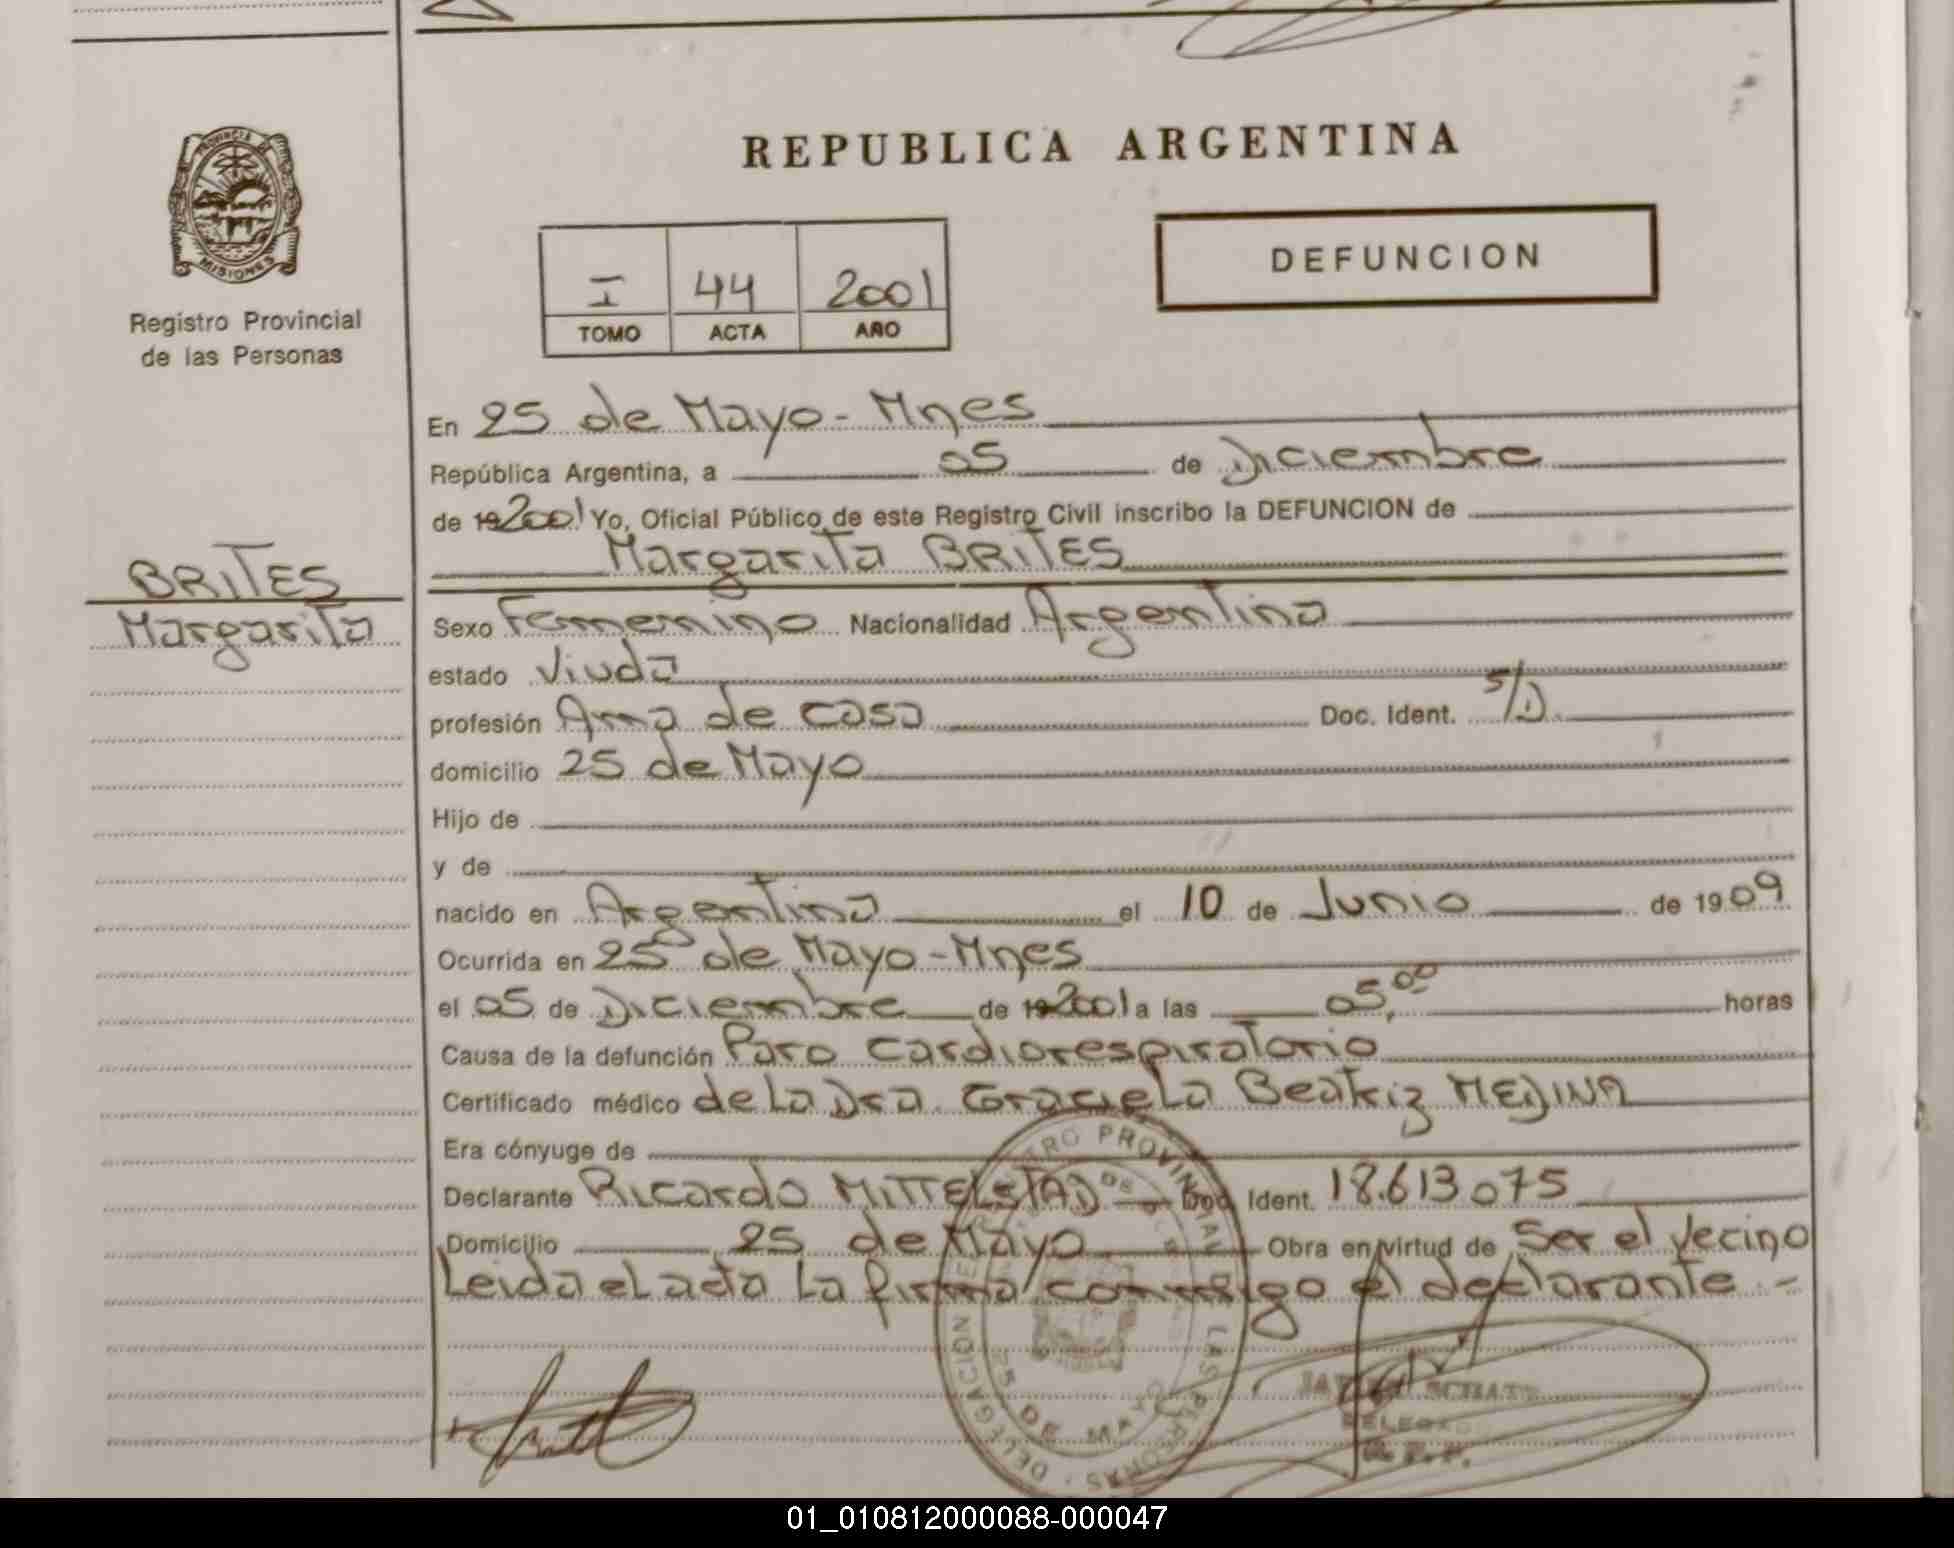 PROVINCIA DE
MISIONES
Registro Provincial
de las Personas
BRITES
Margarita
REPUBLICA ARGENTINA
DEFUNCION
I 44 2001
TOMO ACTA AÑO
En 25 de Mayo - Mnes
República Argentina, a 05 de Diciembre
de 19 2001 Yo, Oficial Público de este Registro Civil inscribo la DEFUNCION de
Margarita BRITES
Sexo Femenino Nacionalidad Argentina
estado Viuda
profesión Ama de casa Doc. Ident. S/D.
domicilio 25 de Mayo
Hijo de
y de
nacido en Argentina el 10 de Junio de 1909
Ocurrida en 25 de Mayo - Mnes
el 05 de Diciembre de 19 2001 a las 05,00 horas
Causa de la defunción Paro cardiorespiratorio
Certificado médico de La Dra. Graciela Beatriz MEDINA
Era cónyuge de
Declarante Ricardo MITTELSTAD Doc. Ident. 18.613.075
Domicilio 25 de Mayo Obra en virtud de Ser el Vecino
Leida el acta La firma conmigo el declarante.-
DELEGACION REGISTRO PROVINCIAL DE LAS PERSONAS
25 DE MAYO
DELEGADO